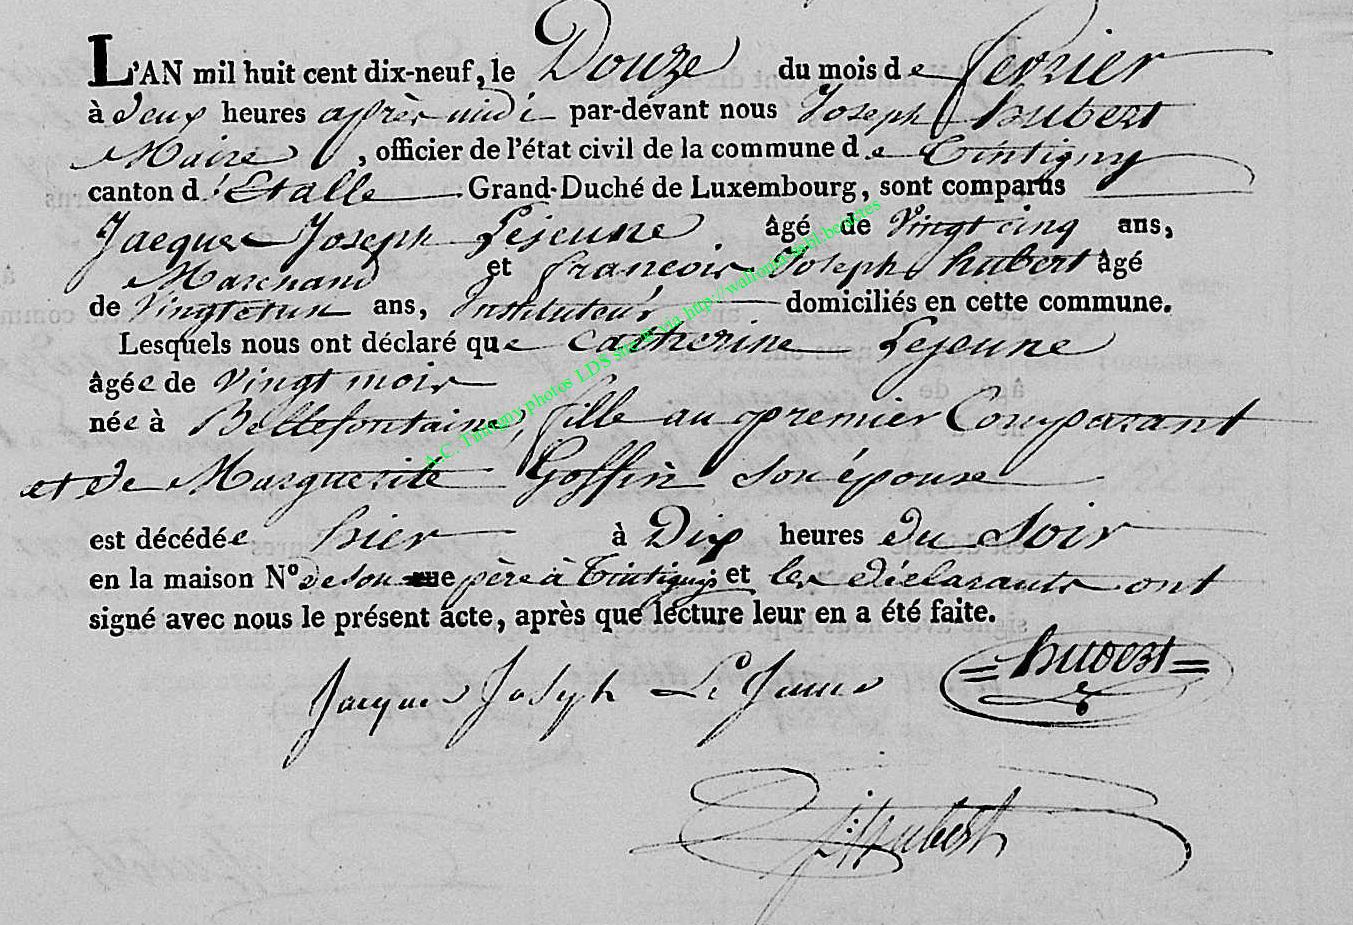 L'AN mil huit cent dix-neuf, le Douze du mois de fevrier
à deux heures après midi par-devant nous Joseph hubert
Maire, officier de l'état civil de la commune de Tintigny
canton d'Etalle Grand-Duché de Luxembourg, sont comparus
Jacque Joseph Lejeune âgé de Vingt cinq ans,
Marchand et francois Joseph hubert âgé
de Vingtetun ans, Instituteur domiciliés en cette commune.
Lesquels nous ont déclaré que Catherine Lejeune
âgée de vingt mois
née à Bellefontaine, fille au premier Comparant
et de Marguerite Goffin son épouse
est décédée hier à Dix heures du Soir
en la maison N° de son rue père à Tintigny et les déclarants ont
signé avec nous le présent acte, après que lecture leur en a été faite.
Jacques Joseph Le Jeune hubert
hubert
A.C. Tintigny photos LDS site via http://wallonica-asbl.be/actes